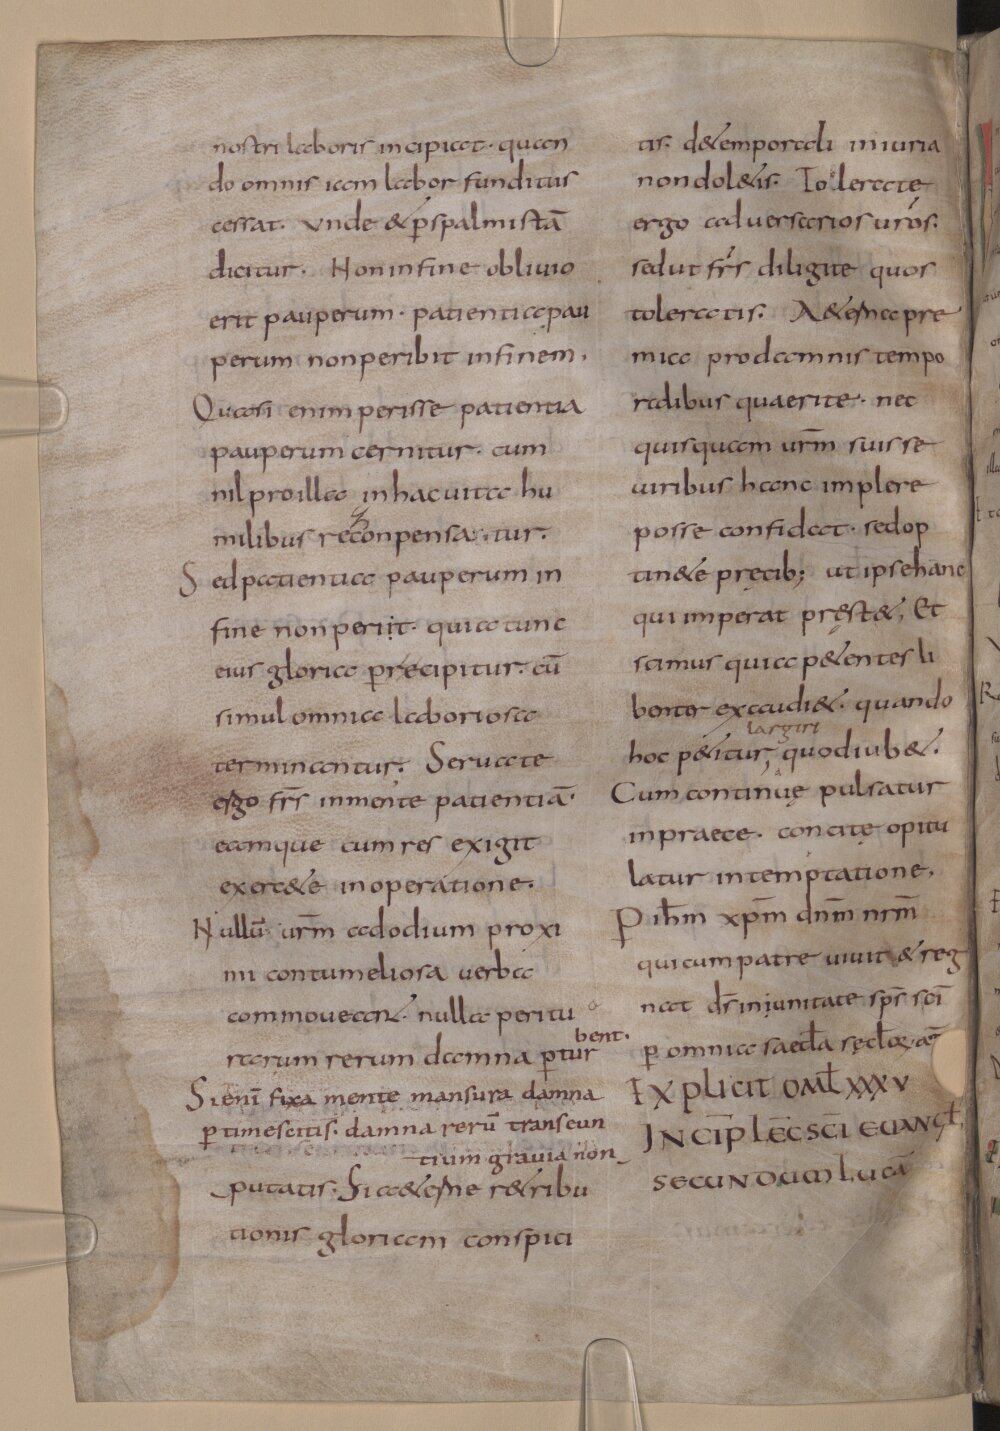 nostri laboris incipiat· quan
do omnis iam labor funditus
cessat. Vnde & p̄spalmistā
dicitur. Non in fine obliuio
erit pauperum· patientia pau
perum non peribit in finem,
Quasi enim perisse patientia
pauperum cernitur· cum
nil pro illa in hac uita hu
milibus reconpensa tur.
Sed patientia pauperum in
fine non periit· quia tunc
eius gloria precipitur. cū
simul omnia laboriosa
terminantur. Seruate
ergo frs̄ in mente patientiā·
eamque cum res exigit
exerc&e in operatione.
Nullū urm̄ ad odium proxi
mi contumeliosa uerba
commoueant. nulla peritu
rarum rerum damna ꝑtur
bent.
Si enī fixa mente mansura damna
ꝑtimescitis. damna rerū transeun
tium grauia non
putatis. Si ca&erne r&ribu
tionis gloriam conspici
tis. d&emporali iniuria
non dol&is. Tolerate
ergo aduersarios urōs.
sed ut frs̄ diligite quos
toleratis. A&erna pre
mia pro damnis tempo
ralibus quaerite· nec
quisquam urm̄ suis se
uiribus hanc implere
posse confidat· sed op
tin&e pręcib; ut ipse hanc
qui imperat pręst&, Et
scimus quia p&entes li
benter exaudi&. quando
largiri
hoc p&itur, quod iub&.
Cum continuę pulsatur
in praece. concitę opitu
latur in temptatione.
P ihm̄ xpm̄ dnm̄ nrm̄
qui cum patre uiuit & reg
nat ds̄ in unitate sps̄ scī
ꝑ omnia saecła sęcłoꝝ. am̄
EXPLICIT OML̄ XXXV
INCIP̄ LEC̄ SCĪ EUANGL̄,
SECUNDUM LUCĀ